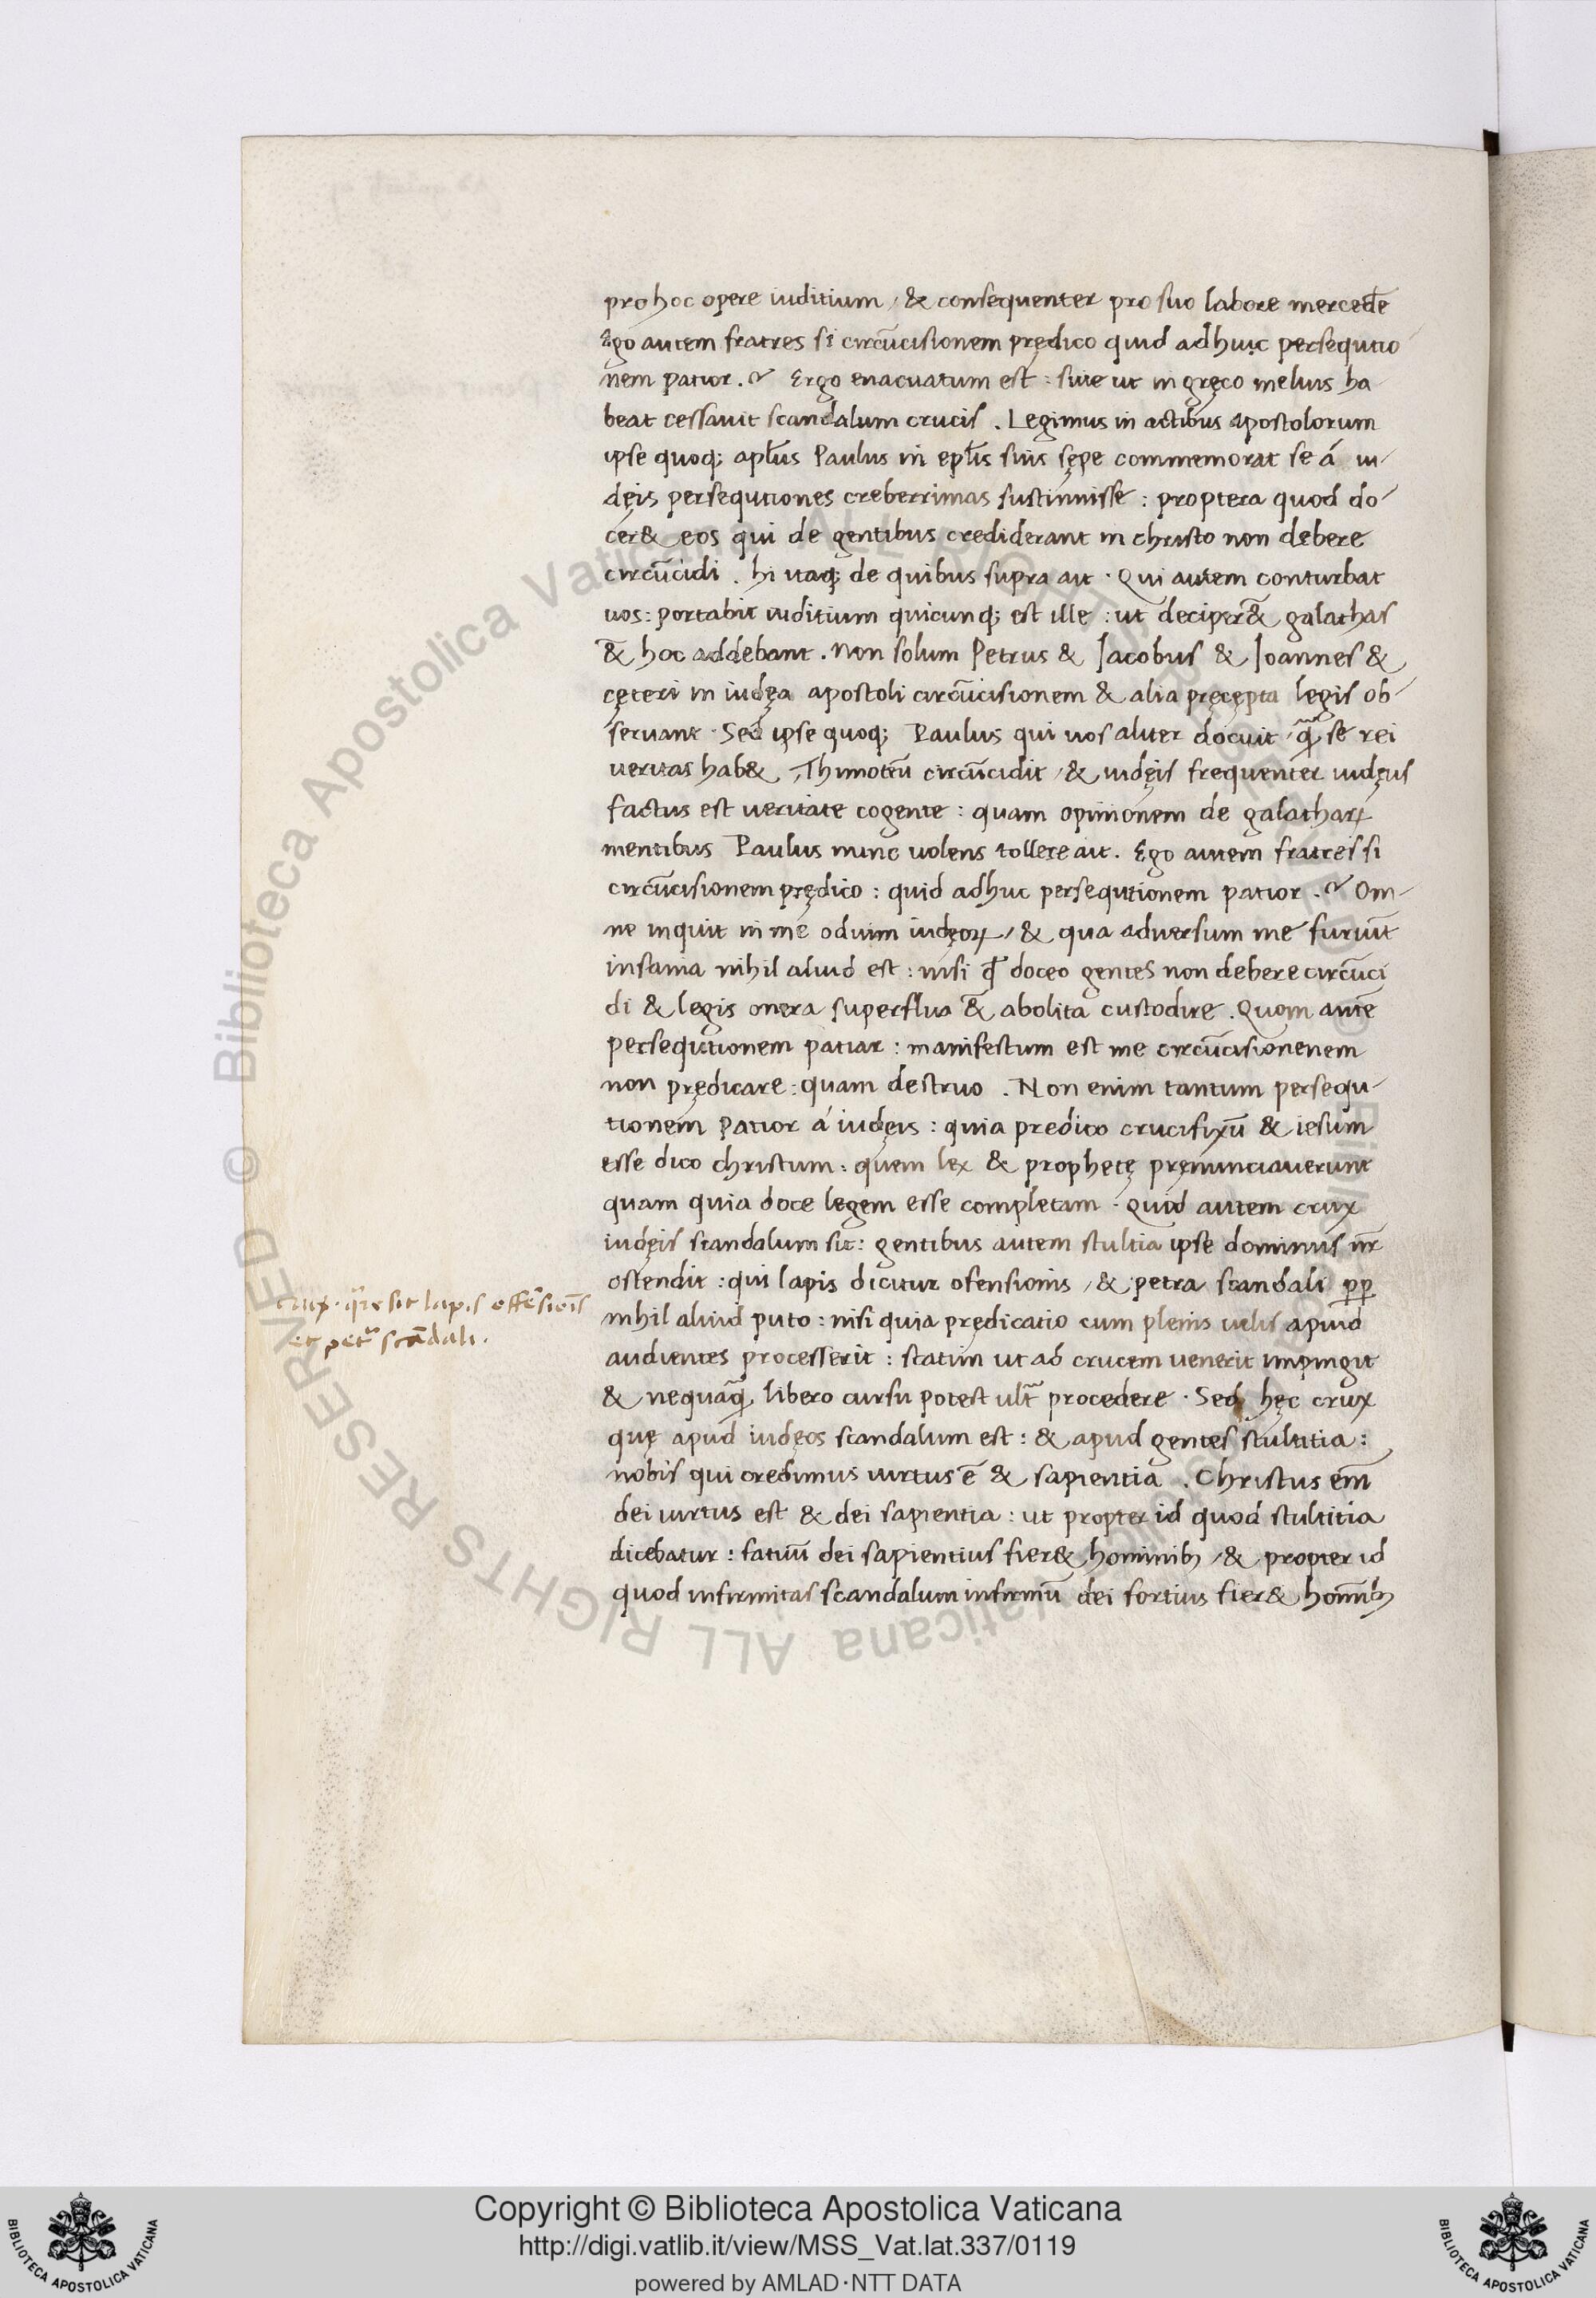 pro hoc opere iuditium / & consequenter pro suo labore mercedē
Ego autem fratres si circūcisionem prędico quid adhuc persequtio
nem patior .? Ergo euacuatum est : siue ut in gręco melius ha
beat cessauit scandalum crucis . Legimus in actibus apostolorum
ipse quoq; apl̄us Paulus in epl̄is suis sępe commemorat se á iu-
dęis persequtiones creberrimas sustinuisse : proptera quod do-
cer& eos qui de gentibus crediderant in christo non debere
circūcidi . hi itaq; de quibus supra ait . Qui autem conturbat
uos : portabit iuditium quicunq; est ille : ut deciper& galathas
& hoc addebant . Non solum Petrus & Jacobus & Joannes &
cęteri in iudęa apostoli circūcisionem & alia pręcępta legis ob-
seruant . Sed ipse quoq; Paulus qui uos aliter docuit / q̄ se rei
ueritas hab& , Thimoteū circūcidit / & iudęis frequenter iudęus
factus est ueritate cogente : quam opinionem de galatharꝝ
mentibus Paulus nunc uolens tollere ait . Ego autem fratres si
circūcisionem prędico : quid adhuc persequtionem patior .? Om-
ne inquit in me odium iudęorꝝ / & qua aduersum me furiūt
insania nihil aliud est : nisi qđ doceo gentes non debere circūci
di & legis onera superflua & abolita custodire . Quom autē
persequtionem patiar : manifestum est me circūcisionenem
non prędicare : quam destruo . Non enim tantum persequ-
tionem patior á iudęis : quia predico crucifixū & iesum
esse dico christum : quem lex & prophetę pręnunciauerunt
quam quia doce legem esse completam . Quid autem crux
iudęis scandalum sit : gentibus autem stultia ipse dominus nr̄
ostendit : qui lapis dicitur ofensionis / & petra scandali ꝑꝑ
nihil aliud puto : nisi quia prędicatio cum plenis uelis apud
audientes processerit : statim ut ad crucem uenerit impingit
& nequāq̄ libero cursu potest ult̄ procedere . Sed hęc crux
quę apud iudęos scandalum est : & apud gentes stultitia :
nobis qui credimus uirtus ē & sapientia . Christus em̄
dei uirtus est & dei sapientia : ut propter id quod stultitia
dicebatur : fatuū dei sapientius fier& hominibꝫ / & propter id
quod infirmitas scandalum infirmū dei fortius fier& hom̄ibꝫ
sit lapis offēsiōis
et petrª scādali .
© Biblioteca Apostolica Vaticana ALL RIGHTS RESERVED
Copyright © Biblioteca Apostolica Vaticana
http://digi.vatlib.it/view/MSS_Vat.lat.337/0119
powered by AMLAD·NTT DATA
BIBLIOTECA APOSTOLICA VATICANA
BIBLIOTECA APOSTOLICA VATICANA